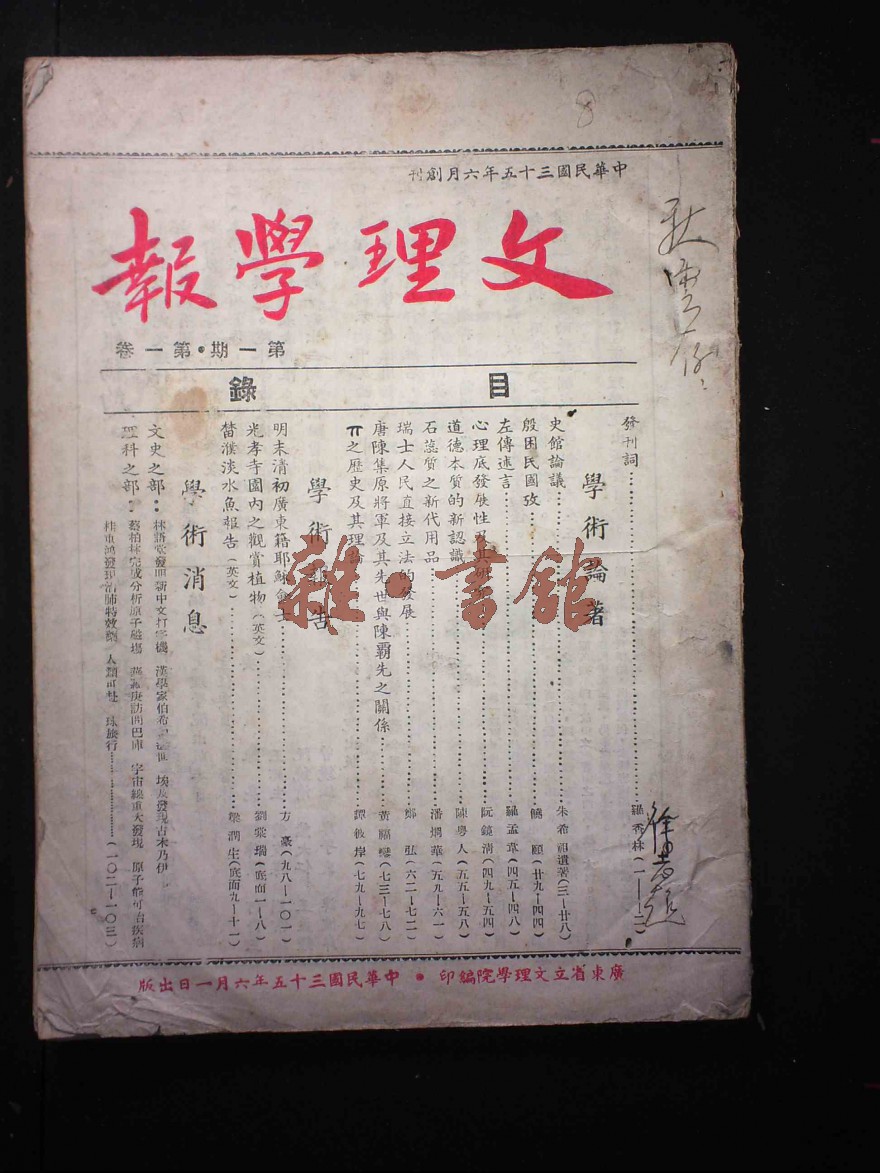 中華民國三十五年六月創刊
文理學報
第一卷・第一期
目錄
發刊詞……羅香林(一—二)
學術論著
史館論議……朱希祖遺著(三—廿八)
殷困民國攷……饒頤(廿九—四四)
左傳述言……羅孟韋(四五—四八)
心理底發展性及其研究……阮鏡清(四九—五四)
道德本質的新認識……陳粵人(五五—五八)
石蕊質之新代用品……潘烱華(五九—六一)
瑞士人民直接立法的發展……鄭弘(六二—七二)
唐陳集原將軍及其先世與陳霸先之關係……黃福鑾(七三—七八)
π之歷史及其理論……譚彼岸(七九—九七)
學術報告
明末清初廣東籍耶穌會士……方豪(九八—一〇一)
光孝寺園內之觀賞植物(英文)……劉棠瑞(底面一—八)
淡水魚報告(英文)……梁潤生(底面九—十一)
學術消息
文史之部：林語堂發明新中文打字機 漢學家伯希和逝世 埃及發現古木乃伊
理科之部：蔡柏林完成分析原子磁場 訪問巴庫 宇宙線重大發現 原子能可治疾病
發現治肺特效藥 人類可 球旅行……(一〇二—一〇三)
廣東省立文理學院編印 • 中華民國三十五年六月一日出版
8
秋雲存
雜・書館